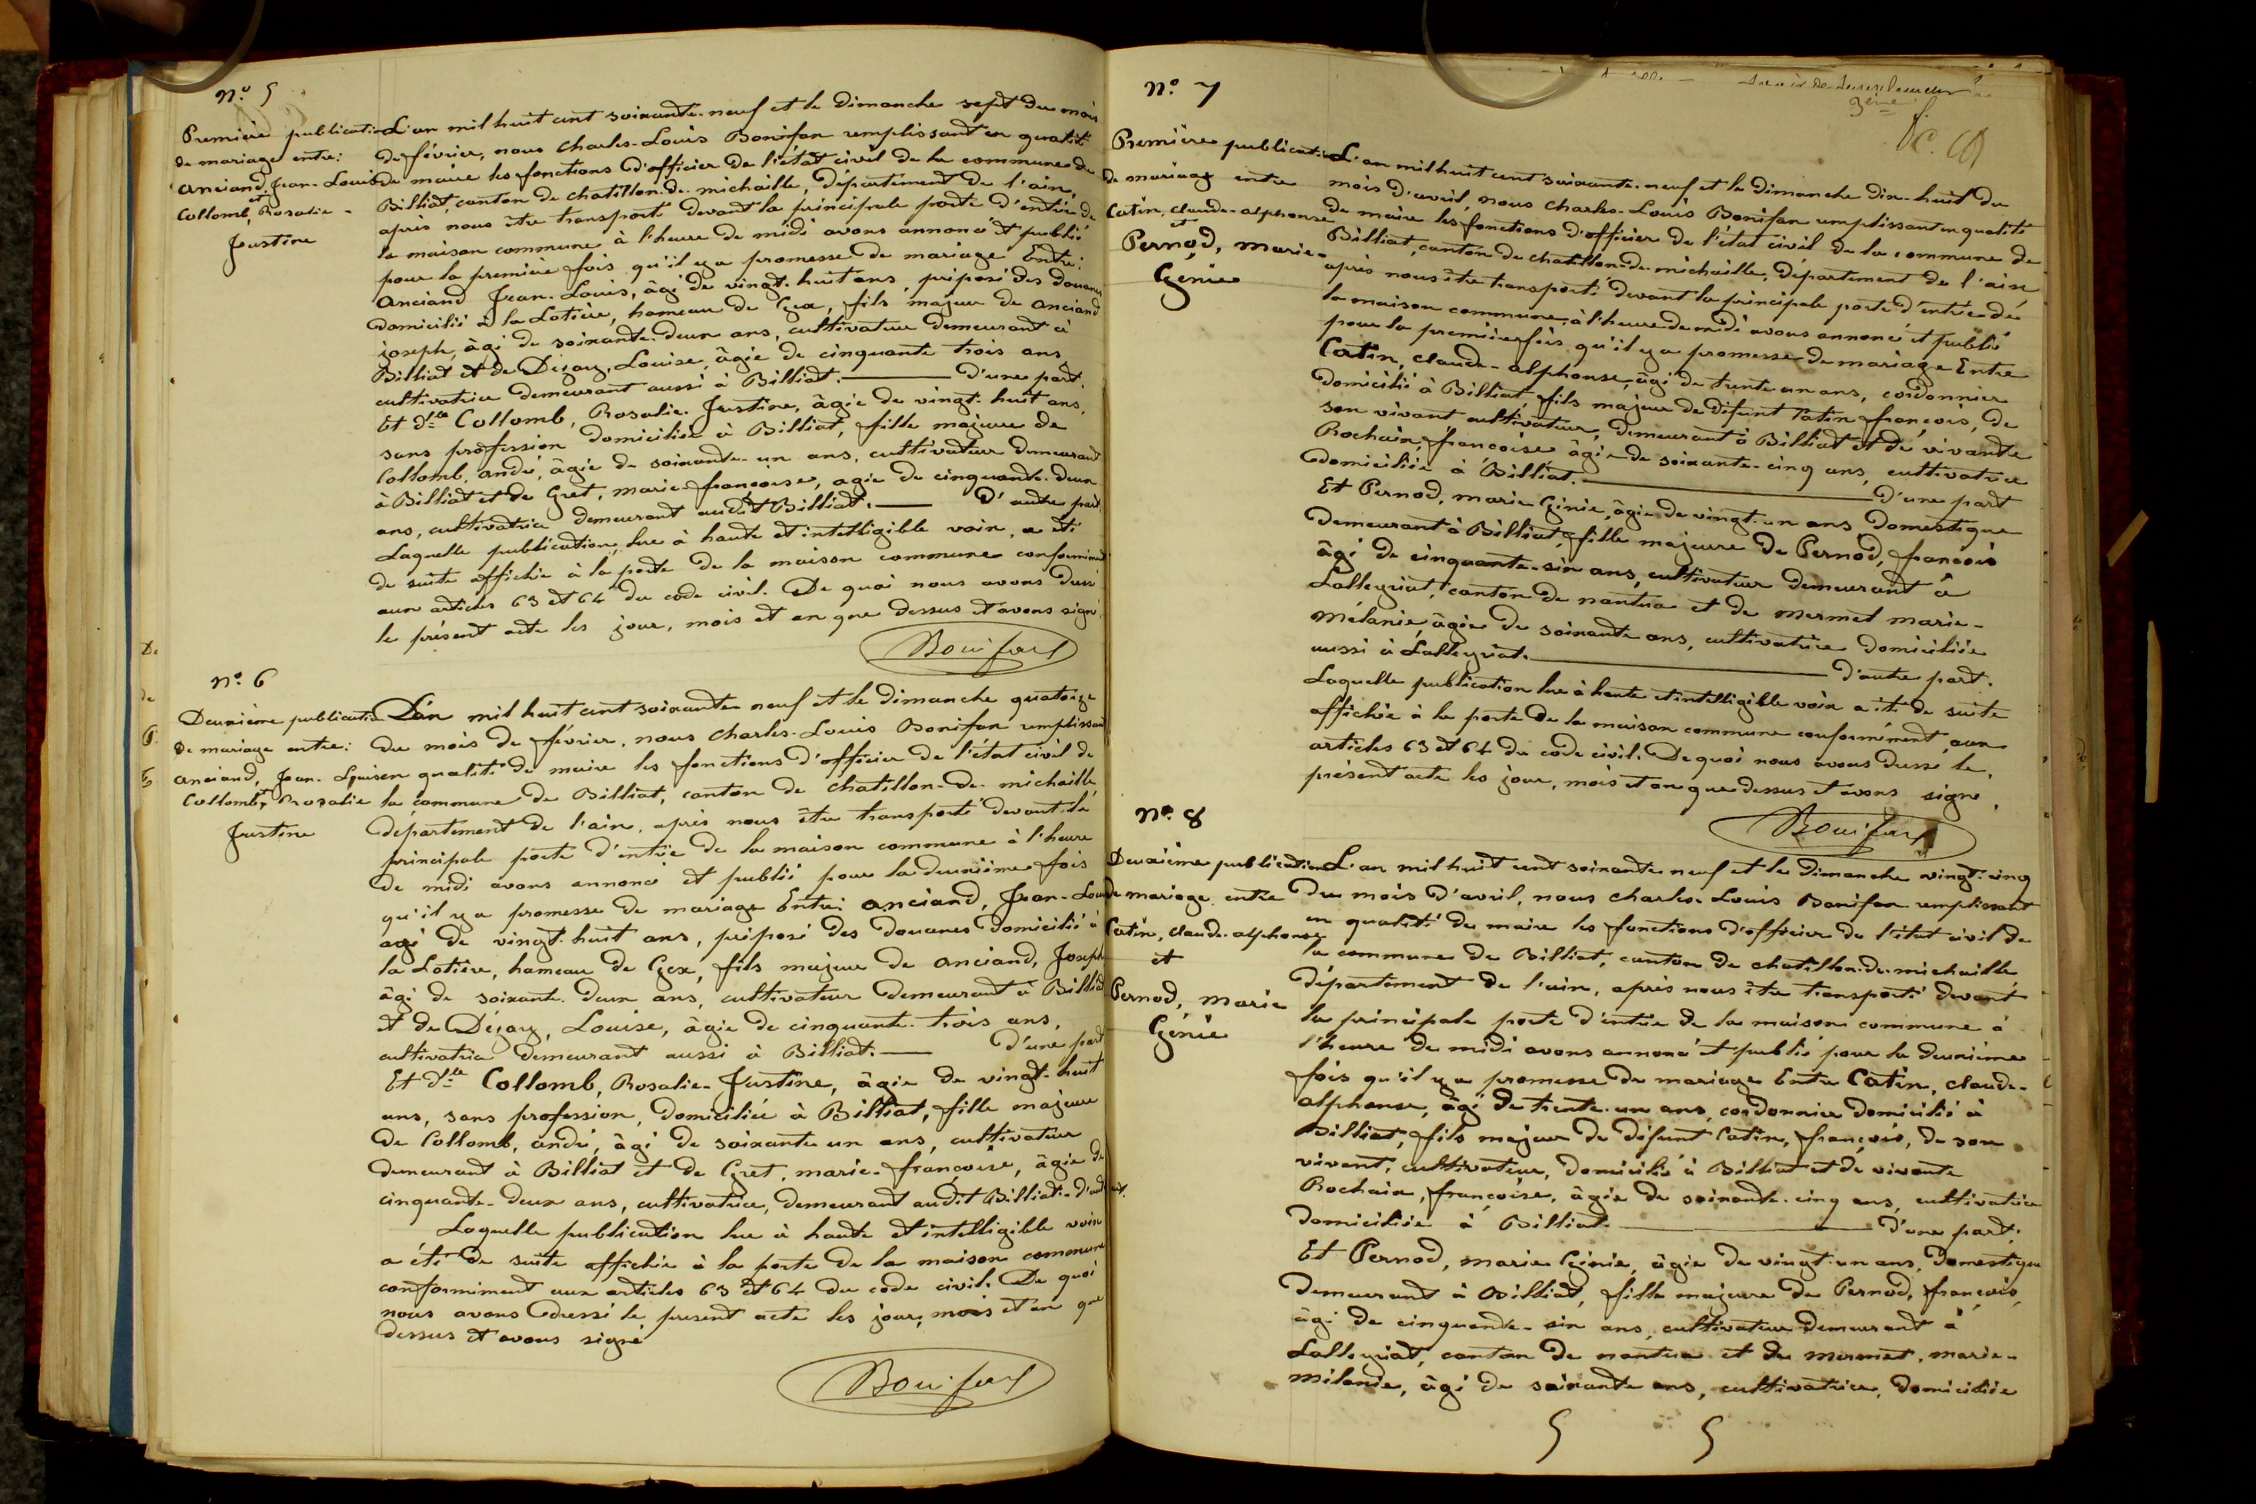 N.º 5
Première publication
de mariage entre:
anciand, Jean-Louis
et
Collomb, Rosalie-
Justine
L'an mil huit cent soixante-neuf et le dimanche sept du mois
de février, nous charles-Louis Bonifax remplissant en qualité
de maire les fonctions d'officier de l'état civil de la commune de
Billiat, canton de chatillon-de-michaille, département de l'ain,
après nous être transporté devant la principale porte d'entrée de
la maison commune à l'heure de midi avons annoncé et publié
pour la première fois qu'il y a promesse de mariage Entre:
anciand Jean-Louis, âgé de vingt-huit ans, préposé des douanes
domicilié à la Lotière, hameau de Gex, fils majeur de anciand
joseph, âgé de soixante-deux ans, cultivateur demeurant à
Billiat et de Déjazy, Louise, âgée de cinquante trois ans
cultivatrice demeurant aussi à Billiat. — d'une part.
Et d.lle Collomb, Rosalie-Justine, âgée de vingt-huit ans,
sans profession domiciliée à Billiat, fille majeure de
Collomb, andré, âgée de soixante-un ans, cultivateur demeurant
à Billiat et de Gret, marie-françoise, agée de cinquante-deux
ans, cultivatrice demeurant audit Billiat. — D'autre part.
Laquelle publication, lue à haute et intelligible voix, a été
de suite affichée à la porte de la maison commune conformément
aux articles 63 et 64 du code civil. De quoi nous avons dressé
le présent acte les jour, mois et an que dessus et avons signé.
Bonifax
N.º 6
Deuxième publication
de mariage entre:
anciand, Jean-Louis
et
Collomb, Rosalie
Justine
L'an mil huit cent soixante-neuf et le dimanche quatorze
du mois de février, nous charles-Louis Bonifax remplissant
en qualité de maire les fonctions d'officier de l'état civil de
la commune de Billiat, canton de chatillon-de-michaille,
département de l'ain, après nous être transporté devant la
principale porte d'entrée de la maison commune à l'heure
de midi avons annoncé et publié pour la deuxième fois
qu'il y a promesse de mariage Entre: anciand, Jean-Louis
agé de vingt-huit ans, préposé des douanes domicilié à
la Lotière, hameau de Gex, fils majeur de anciand, Joseph
âgé de soixante-deux ans, cultivateur demeurant à Billiat
et de Déjazy, Louise, âgée de cinquante-trois ans,
cultivatrice demeurant aussi à Billiat. — d'une part
Et d.lle Collomb, Rosalie-Justine, âgée de vingt-huit
ans, sans profession, domiciliée à Billiat, fille majeure
de Collomb, andré, âgé de soixante un ans, cultivateur
demeurant à Billiat et de Gret, marie-françoise, âgée de
cinquante-deux ans, cultivatrice, demeurant audit Billiat-
Laquelle publication lue à haute et intelligible voix
a été de suite affichée à la porte de la maison commune
conformément aux articles 63 et 64 du code civil. De quoi
nous avons dressé le present acte les jour, mois et an que
dessus et avons signé
Bonifax
N.º 7
Première publication
de mariage entre
Catin, claude-alphonse
et
Pernod, marie-
Génie
L'an mil huit cent soixante-neuf et le dimanche dix-huit du
mois d'avril, nous charles-Louis Bonifax remplissant en qualité
de maire les fonctions d'officier de l'état civil de la commune de
Billiat, canton de chatillon-de-michaille, département de l'ain
après nous être transporté devant la principale porte d'entrée de
la maison commune, à l'heure de midi avons annoncé et publié
pour la première fois qu'il y a promesse de mariage Entre
Catin, claude-alphonse, âgé de trente un ans, cordonnier
domicilié à Billiat, fils majeur de défunt Catin françois, de
son vivant cultivateur, demeurant à Billiat et de vivante
Rochaix, françoise âgée de soixante-cinq ans, cultivatrice
domiciliée à Billiat. — d'une part
Et Pernod, marie Génie, âgée de vingt-un ans domestique
demeurant à Billiat, fille majeure de Pernod, françois
âgé de cinquante-six ans, cultivateur demeurant à
Lalleyriat, canton de nantua et de mermet marie-
mélanie, âgée de soixante ans, cultivatrice domiciliée
aussi à Lalleyriat. — d'autre part.
Laquelle publication lue à haute et intelligible voix a été de suite
affichée à la porte de la maison commune conformément aux
articles 63 et 64 du code civil. De quoi nous avons dressé le
présent acte les jour, mois et an que dessus et avons signé.
Bonifax
N.º 8
Deuxième publication
de mariage entre
Catin, claude-alphonse
et
Pernod, marie
Génie
L'an mil huit cent soixante-neuf et le dimanche vingt-cinq
du mois d'avril, nous charles-Louis Bonifax remplissant
en qualité de maire les fonctions d'officier de l'état civil de
la commune de Billiat, canton de chatillon-de-michaille
département de l'ain, après nous être transporté devant
la principale porte d'entrée de la maison commune à
l'heure de midi avons annoncé et publié pour la deuxième
fois qu'il y a promesse de mariage Entre Catin, claude-
alphonse, âgé de trente-un ans, cordonnier domicilié à
Billiat, fils majeur de défunt Catin, françois, de son
vivant, cultivateur, domicilié à Billiat et de vivante
Rochaix, françoise, âgée de soixante-cinq ans, cultivatrice
domiciliée à Billiat. — d'une part.
Et Pernod, marie Génie, âgée de vingt-un ans, domestique
demeurant à Billiat, fille majeure de Pernod, françois,
âgé de cinquante-six ans, cultivateur demeurant à
Lalleyriat, canton de nantua et de mermet, marie-
mélanie, âgé de soixante ans, cultivatrice, domiciliée